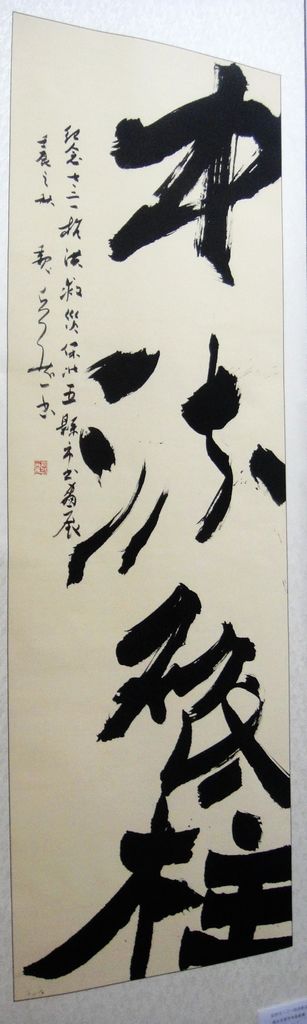 中流砥柱
纪念七二一抗洪救灾保北五縣市书画展
壬辰之秋